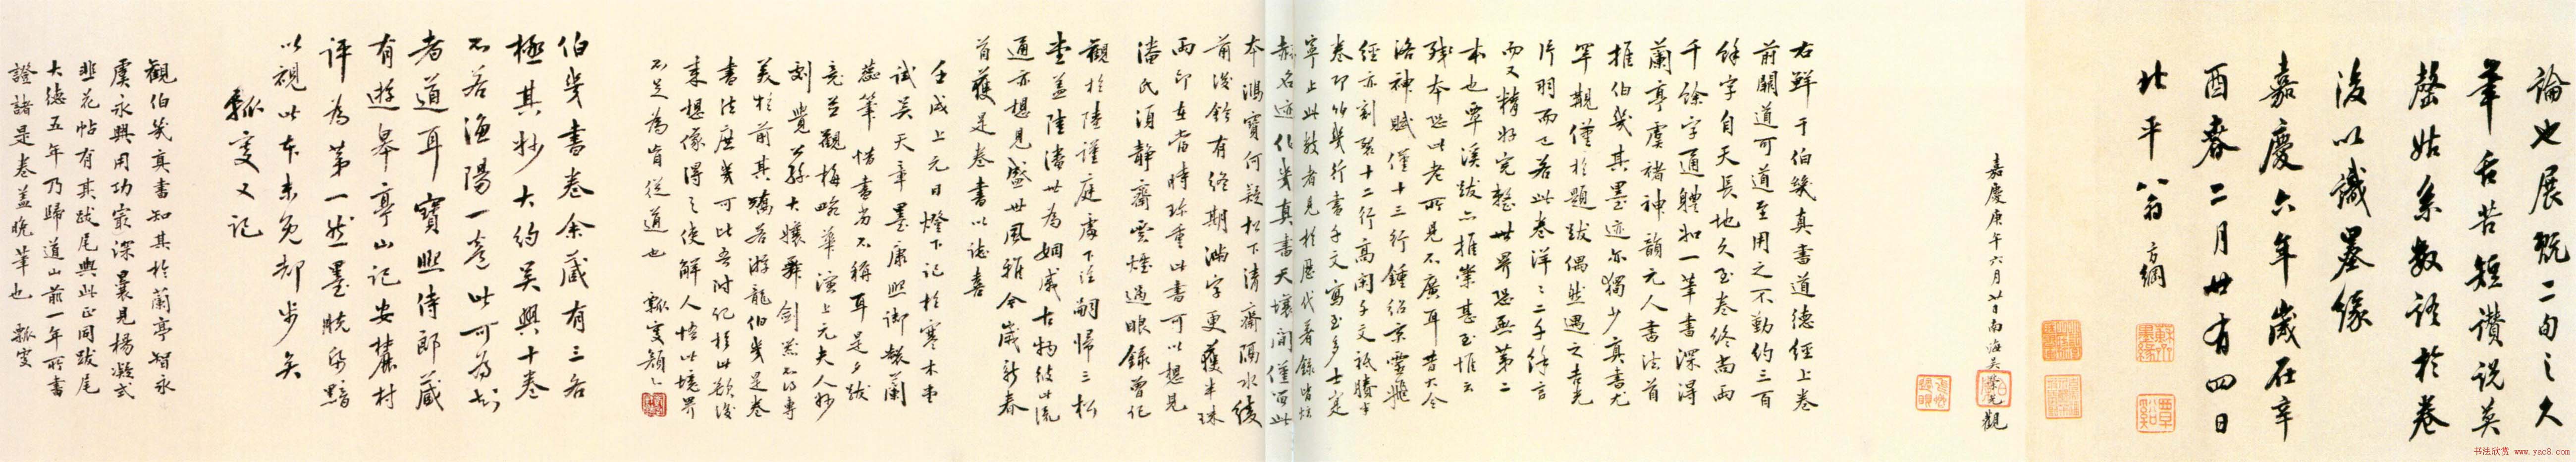 論也展翫二旬之久
筆舌苦短讚說莫
罄姑系數語於卷
後以識墨緣
嘉慶六年歲在辛
酉春二月廿有四日
北平翁方綱
嘉慶庚午六月廿日南海吳榮光觀
右鮮于伯幾真書道德經上卷
前闕道可道至用之不勤約三百
餘字自天長地久至卷終尚兩
千餘字通體如一筆書深得
蘭亭虞褚神韻元人書法首
推伯幾其墨迹亦獨少真書尤
罕觀僅於題跋偶然遇之吉光
片羽而已若此卷洋洋二千餘言
而又精好完整世界恐無第二
本也覃溪跋亦推崇甚至惟云
殘本恐此老所見不廣耳昔大令
洛神賦僅十三行鍾紹京靈飛
經亦割裂十二行高閑千文祇賸半
卷即伯幾行書千文寫至多士寔
寧止此數者見於歷代著錄皆炫
赫名迹伯幾真書天壤間僅留此
本鴻寶何疑松下清齋隔水綾
前後鈐有終期滿字更獲半珠
兩印在當時珍重此書可以想見
潘氏須靜齋雲煙過眼錄曾化
觀於陸謹庭處下注嗣歸三松
堂蓋陸潘世為姻戚古物彼此流
通亦想見盛世風雅今歲新春
首獲是卷書以志喜
壬戌上元日燈下記於寒木堂
試吳天章墨康熙御製蘭
蕊筆 惜書尚不稱耳是夕跋
竟並觀梅畹華演上元夫人妙
劇覺公孫大孃舞劍器不得專
美於前其矯若游龍伯幾是卷
書法庶幾可比吾附記於此欲後
來想像得之使解人悟此境界
不足為盲從道也 瓢叟顏六
伯幾書卷余藏有三各
極其妙大約吳興十卷
不若漁陽一卷此可為知
者道耳寶熙侍郎藏
有遊皋亭山記安麓村
評為第一然墨脫紙黯
以視此本未免却步矣
瓢叟又記
觀伯幾真書知其於蘭亭智永
虞永興用功最深曩見楊凝式
韭花帖有其跋尾與此正同跋尾
大德五年乃歸道山前一年所書
證諸是卷蓋晚筆也 瓢叟
书法欣赏 www.yac8.com